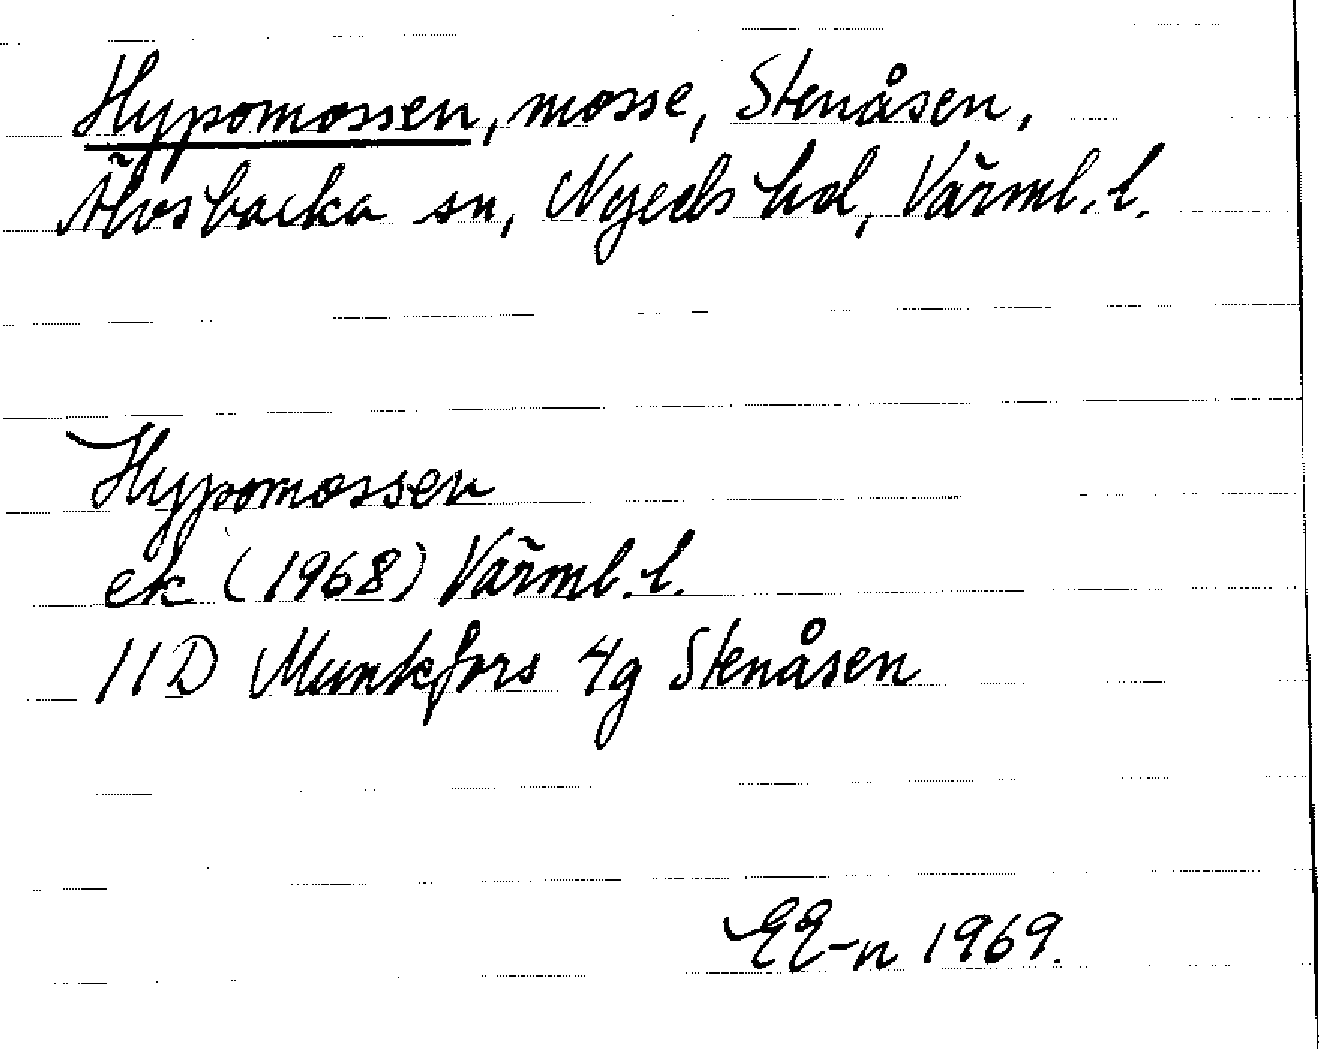 Hypomossen, mosse, Stenåsen,
Älvsbacka sn, Nyeds hd, Värml. l.
Hypomossen
ek (1968) Värml. l.
11D Munkfors 4g Stenåsen
EE-n 1969.